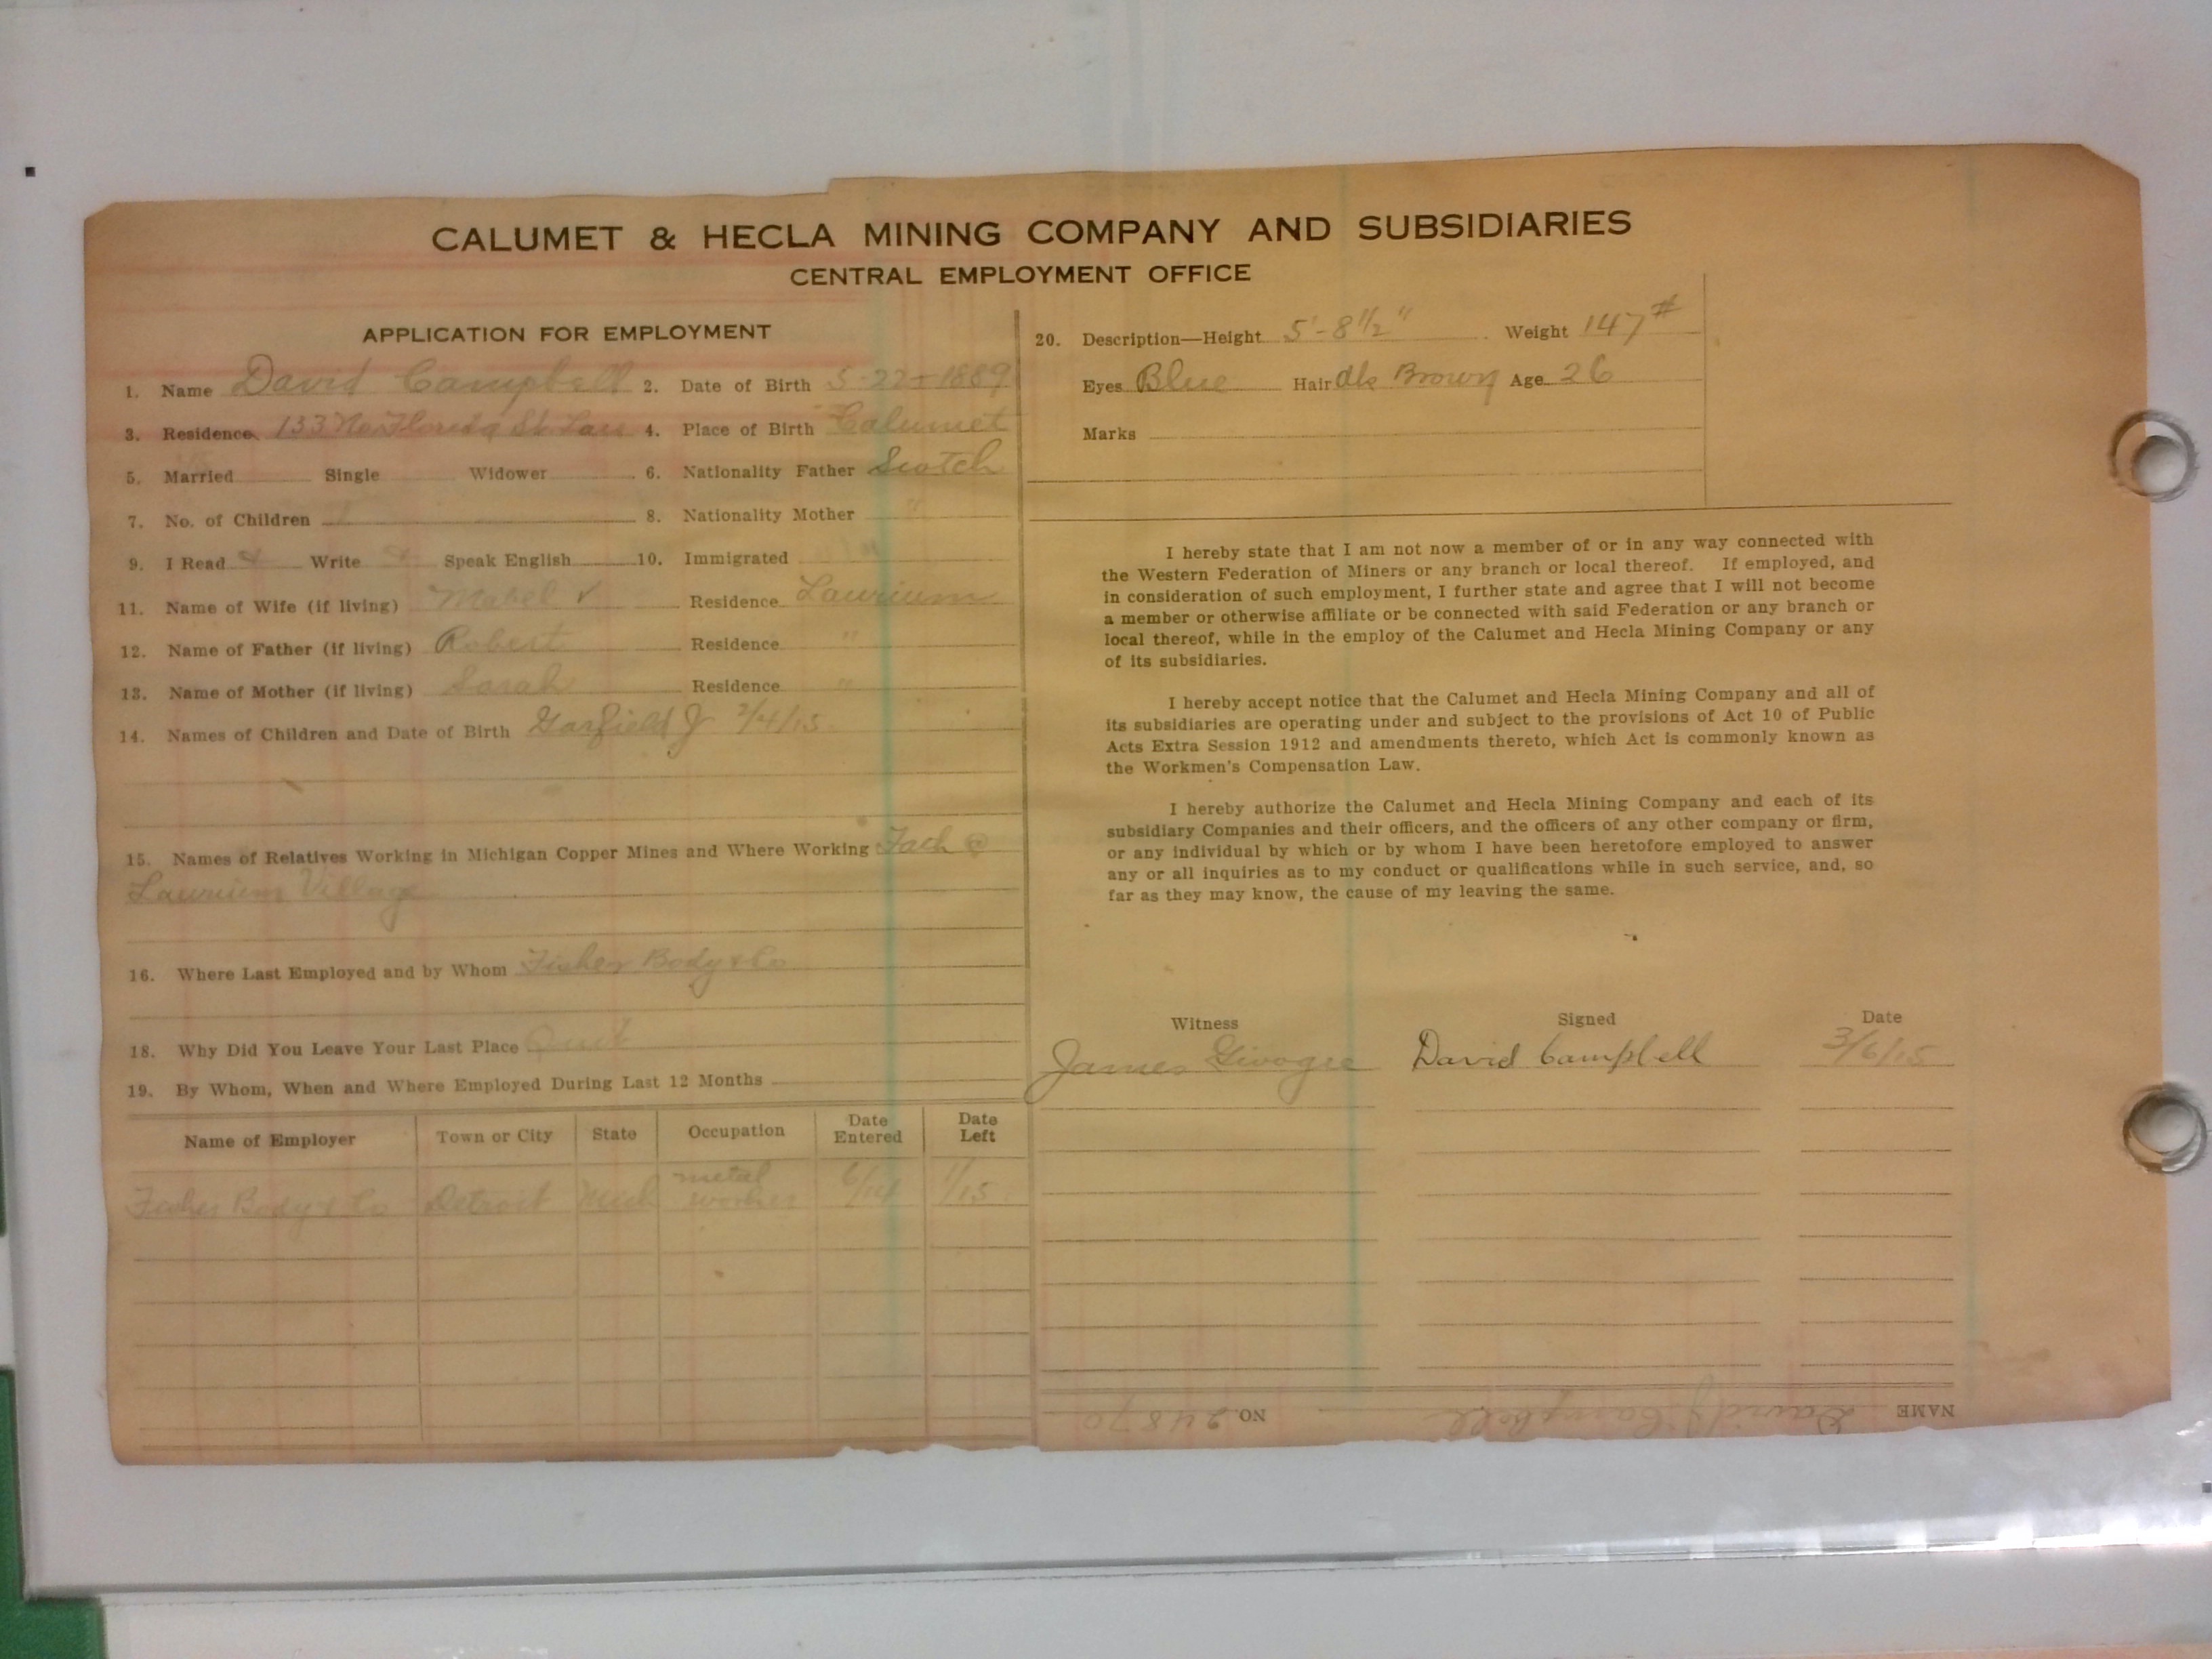 CALUMET & HECLA MINING COMPANY AND SUBSIDIARIES
CENTRAL EMPLOYMENT OFFICE
APPLICATION FOR EMPLOYMENT
1. Name David Campbell 2. Date of Birth 5-22-1889
3. Residence 133 No Florida St Lau 4. Place of Birth Calumet
5. Married Single Widower 6. Nationality Father Scotch
7. No. of Children 1 8. Nationality Mother "
9. I Read Write Speak English 10. Immigrated
11. Name of Wife (if living) Mabel V Residence Laurium
12. Name of Father (if living) Robert Residence "
13. Name of Mother (if living) Sarah Residence "
14. Names of Children and Date of Birth Garfield J 2/4/15
15. Names of Relatives Working in Michigan Copper Mines and Where Working Fach @
Laurium Village
16. Where Last Employed and by Whom Fisher Body & Co
18. Why Did You Leave Your Last Place Quit
19. By Whom, When and Where Employed During Last 12 Months
Name of Employer Town or City State Occupation Date Entered Date Left
Fisher Body & Co Detroit Mich metal worker 6/14 1/15
20. Description—Height 5'-8 1/2" Weight 147#
Eyes Blue Hair dk Brown Age 26
Marks
I hereby state that I am not now a member of or in any way connected with
the Western Federation of Miners or any branch or local thereof. If employed, and
in consideration of such employment, I further state and agree that I will not become
a member or otherwise affiliate or be connected with said Federation or any branch or
local thereof, while in the employ of the Calumet and Hecla Mining Company or any
of its subsidiaries.
I hereby accept notice that the Calumet and Hecla Mining Company and all of
its subsidiaries are operating under and subject to the provisions of Act 10 of Public
Acts Extra Session 1912 and amendments thereto, which Act is commonly known as
the Workmen's Compensation Law.
I hereby authorize the Calumet and Hecla Mining Company and each of its
subsidiary Companies and their officers, and the officers of any other company or firm,
or any individual by which or by whom I have been heretofore employed to answer
any or all inquiries as to my conduct or qualifications while in such service, and, so
far as they may know, the cause of my leaving the same.
Witness Signed Date
James David Campbell 3/6/15
NAME David J. Campbell NO. 24870